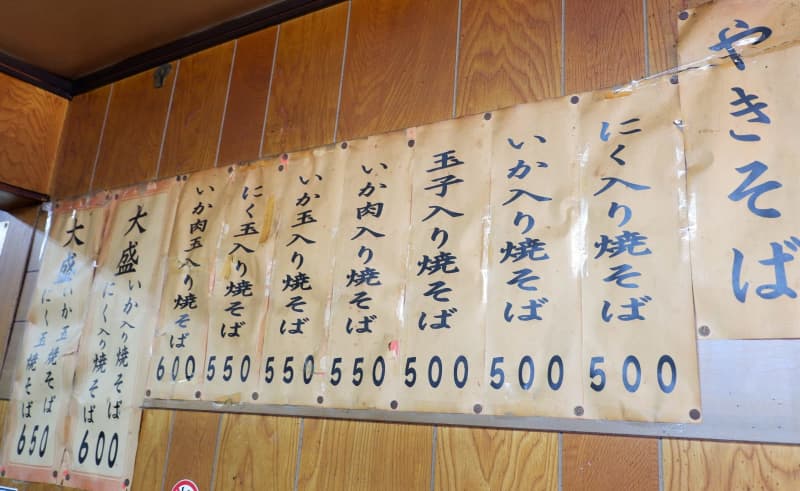 やきそば
にく入り焼そば
500
いか入り焼そば
500
玉子入り焼そば
500
いか肉入り焼そば
550
いか玉入り焼そば
550
にく玉入り焼そば
550
いか肉玉入り焼そば
600
大盛
いか入り焼そば
にく入り焼そば
600
大盛
いか玉焼そば
にく玉焼そば
650